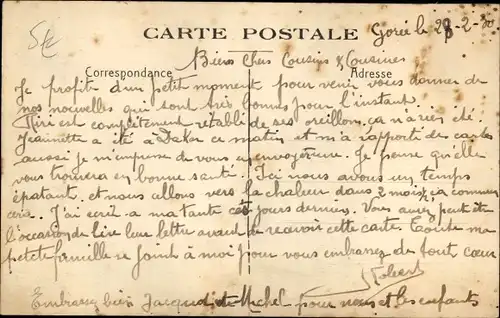 CARTE POSTALE
Gorée le 28-2-30
Biens Chers Cousins & Cousines
Correspondance Adresse
Je profite d'un petit moment pour venir vous donner de
nos nouvelles qui sont très bonnes pour l'instant.
est complètement rétabli de ses oreillons, ça n'a rien été.
Jeannette a été à Dakar ce matin et m'a rapporté des cartes
aussi je m'empresse de vous en envoyer une. Je pense qu'elle
vous trouvera en bonne santé. Ici nous avons un temps
épatant, et nous allons vers la chaleur dans 2 mois, ça commen
cera. J'ai écrit a ma tante ces jours derniers. Vous aurez peut être
l'occasion de lire leur lettre avant de recevoir cette carte. Toute ma
petite famille se joind à moi pour vous embrasser de tout coeur
Robert
Embrassez bien Jacques et Michel pour nous et les enfants